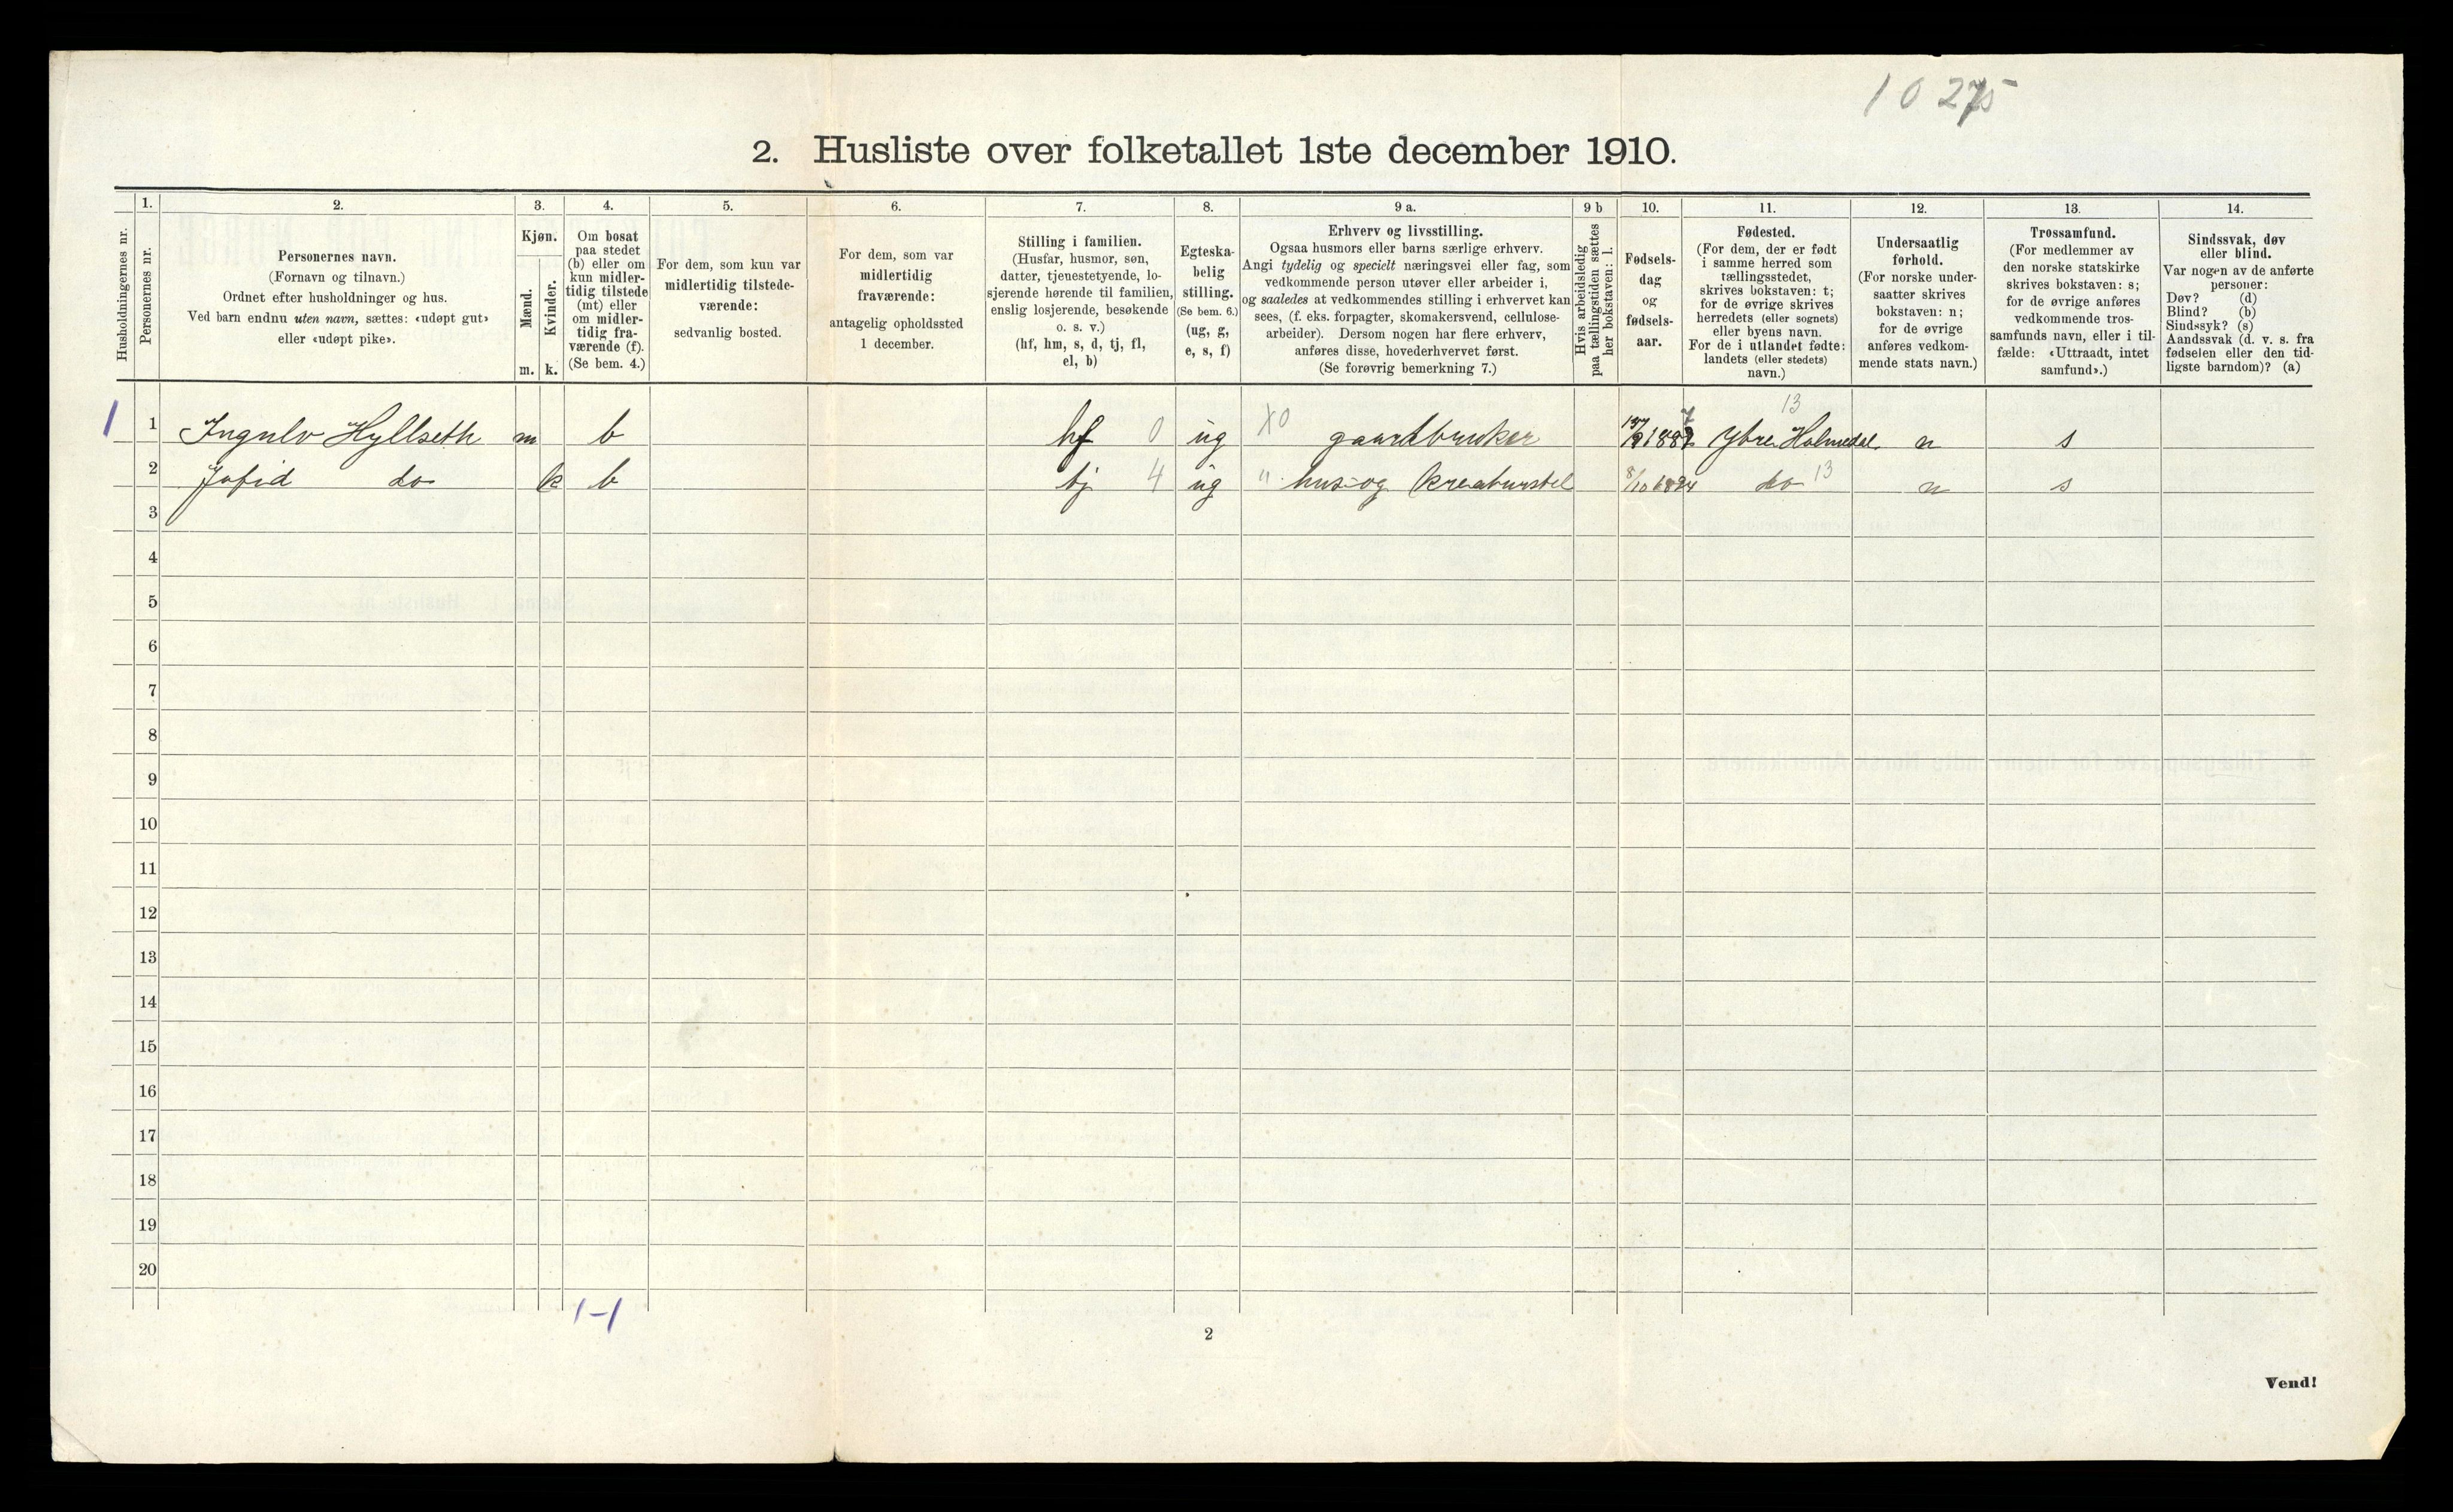 10 275
2. Husliste over folketallet 1ste december 1910.
Husholdningernes nr.
1.
Personernes nr.
2.
Personernes navn.
(Fornavn og tilnavn.)
Ordnet efter husholdninger og hus.
Ved barn endnu uten navn, sættes: «udøpt gut»
eller «udøpt pike».
3.
Kjøn.
Mænd.
Kvinder.
m. k.
4.
Om bosat
paa stedet
(b) eller om
kun midler-
tidig tilstede
(mt) eller
om midler-
tidig fra-
værende (f).
(Se bem. 4.)
5.
For dem, som kun var
midlertidig tilstede-
værende:
sedvanlig bosted.
6.
For dem, som var
midlertidig
fraværende:
antagelig opholdssted
1 december.
7.
Stilling i familien.
(Husfar, husmor, søn,
datter, tjenestetyende, lo-
sjerende hørende til familien,
enslig losjerende, besøkende
o. s. v.)
(hf, hm, s, d, tj, fl,
el, b)
8.
Egteska-
belig
stilling.
(Se bem. 6.)
(ug, g,
e, s, f)
9 a.
Erhverv og livsstilling.
Ogsaa husmors eller barns særlige erhverv.
Angi tydelig og specielt næringsvei eller fag, som
vedkommende person utøver eller arbeider i,
og saaledes at vedkommendes stilling i erhvervet kan
sees, (f. eks. forpagter, skomakersvend, cellulose-
arbeider). Dersom nogen har flere erhverv,
anføres disse, hovederhvervet først.
(Se forøvrig bemerkning 7.)
9 b
Hvis arbeidsledig
paa tællingstiden sættes
her bokstaven: l.
10.
Fødsels-
dag
og
fødsels-
aar.
11.
Fødested.
(For dem, der er født
i samme herred som
tællingsstedet,
skrives bokstaven: t;
for de øvrige skrives
herredets (eller sognets)
eller byens navn.
For de i utlandet fødte:
landets (eller stedets)
navn.)
12.
Undersaatlig
forhold.
(For norske under-
saatter skrives
bokstaven: n;
for de øvrige
anføres vedkom-
mende stats navn.)
13.
Trossamfund.
(For medlemmer av
den norske statskirke
skrives bokstaven: s;
for de øvrige anføres
vedkommende tros-
samfunds navn, eller i til-
fælde: «Uttraadt, intet
samfund».)
14.
Sindssvak, døv
eller blind.
Var nogen av de anførte
personer:
Døv? (d)
Blind? (b)
Sindssyk? (s)
Aandssvak (d. v. s. fra
fødselen eller den tid-
ligste barndom)? (a)
13
1 1 Ingulv Hyllseth m b hf 0 ug X0 gaardbruker Ytre Holmedal n s
2 Jofid do k b tj 4 ug " hus og kreaturstel 8/10 1894 do 13 n s
3
4
5
6
7
8
9
10
11
12
13
14
15
16
17
18
19
20
1-1
2
Vend!